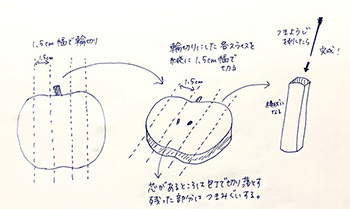 1.5cm幅で輪切り
1.5cm
輪切りにした各スライスを
水平に1.5cm幅で
切る
1.5cm
つまようじ
をさしたら
完成！
棒状に
なる
芯があるところは包丁で切り落とす
残った部分はつまみぐいする。